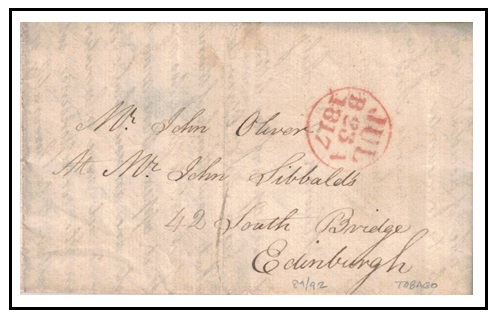 Mr. John Oliver
At Mr. John Sibbalds
42 South Bridge
Edinburgh
JUL
B 23
1817
TOBAGO